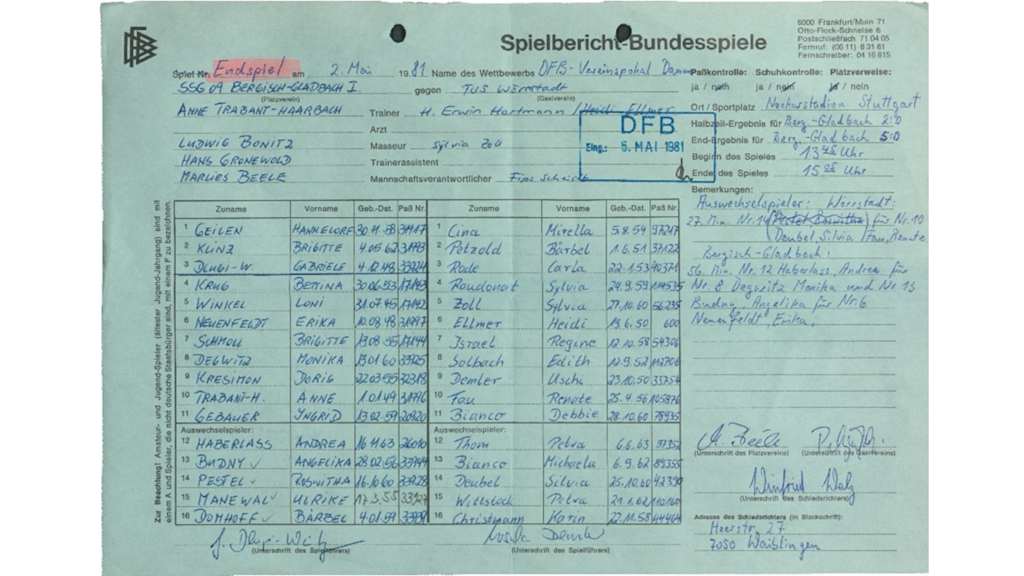 Spielbericht-Bundesspiele
6000 Frankfurt/Main 71
Otto-Fleck-Schneise 6
Postschließfach 71 04 05
Fernruf: (06 11) 6 31 61
Fernschreiber: 04 16 815
Spiel-Nr. Endspiel am 2. Mai 1981 Name des Wettbewerbs DFB-Vereinspokal Damen
SSG 09 BERGISCH-GLADBACH I gegen TUS Wörrstadt
(Platzverein) (Gastverein)
ANNE TRABANT-HAARBACH Trainer H. Erwin Hartmann / Heidi Ellmer
Arzt
LUDWIG BONITZ Masseur Sylvia Zoll
HANS GRONEWOLD Trainerassistent
MARLIES BEELE Mannschaftsverantwortlicher
DFB
Eing.: 5. MAI 1981
Paßkontrolle: Schuhkontrolle: Platzverweise:
ja / nein ja / nein ja / nein
Ort / Sportplatz Neckarstadion Stuttgart
Halbzeit-Ergebnis für Berg.-Gladbach 2:0
End-Ergebnis für Berg.-Gladbach 5:0
Beginn des Spieles 13 45 Uhr
Ende des Spieles 15 25 Uhr
Bemerkungen:
Auswechselspieler: Wörrstadt:
27. Min. Nr. 14 (Pestel Roswitha) für Nr. 10
Deubel, Silvia / Fau, Renate
Bergisch-Gladbach:
56. Min. Nr. 12 Haberlass, Andrea für
Nr. 8 Degwitz Monika und Nr. 13
Budny, Angelika für Nr. 6
Neuenfeldt, Erika.
Zur Beachtung! Amateur- und Jugend-Spieler (ältester Jugend-Jahrgang) sind mit
einem A und Spieler, die nicht deutsche Staatsbürger sind, mit einem F zu bezeichnen.
Zuname Vorname Geb.-Dat. Paß Nr. Zuname Vorname Geb.-Dat. Paß Nr.
1 GEILEN HANNELORE 30.11.58 1 Cina Mirella 5.8.59
2 KLINZ BRIGITTE 4.05.62 2 Petzold Bärbel 1.6.51 37122
3 DLUGI-W. GABRIELE 4.12.48 3 Rode Carla 22.1.53
4 KRUG BETTINA 30.06.53 4 Raudonat Sylvia 24.9.59
5 WINKEL LONI 31.07.45 5 Zoll Sylvia 27.10.60 56235
6 NEUENFELDT ERIKA 10.08.48 6 Ellmer Heidi 13.6.50 600
7 SCHMOLL BRIGITTE 19.08.55 7 Israel Regine 12.10.58
8 DEGWITZ MONIKA 13.01.60 8 Solbach Edith 12.9.52
9 KRESIMON DORIS 22.03.55 9 Demler Uschi 23.10.50 33754
10 TRABANT-H. ANNE 1.01.49 10 Fau Renate 25.4.56 105876
11 GEBAUER INGRID 13.02.59 11 Bianco Debbie 28.10.60 78935
Auswechselspieler: Auswechselspieler:
12 HABERLASS ANDREA 16.11.63 12 Thom Petra 6.6.63
13 BUDNY ANGELIKA 28.02.56 13 Bianco Michaela 6.9.62 89355
14 PESTEL ROSWITHA 16.10.60 14 Deubel Silvia 25.10.60
15 MANEWAL ULRIKE 17.3.55 15 Wittstock Petra
16 DOMHOFF BÄRBEL 4.01.59 16 Christmann Karin 22.11.58
(Unterschrift des Spielführers) (Unterschrift des Spielführers)
M. Beele
(Unterschrift des Platzvereins) (Unterschrift des Gastvereins)
Winfried Walz
(Unterschrift des Schiedsrichters)
Adresse des Schiedsrichters (in Blockschrift):
Heerstr. 27
7050 Waiblingen